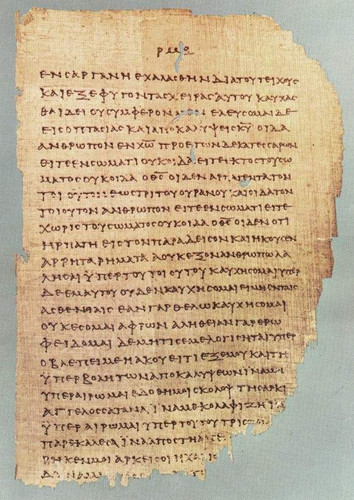 ΕΝϹΑΡΓΑΝΗΕΧΑΛΑϹΘΗΝΔΙΑΤΟΥΤΕΙΧΟΥϹ
ΚΑΙΕΞΕΦΥΓΟΝΤΑϹΧΕΙΡΑϹΑΥΤΟΥΚΑΥΧΑϹ
ΘΑΙΔΕΙΟΥϹΥΜΦΕΡΟΝΜΕΝΕΛΕΥϹΟΜΑΙΔΕ
ΕΙϹΟΠΤΑϹΙΑϹΚΑΙΑΠΟΚΑΛΥΨΕΙϹΚ̅Υ̅ΟΙΔΑ
ΑΝΘΡΩΠΟΝΕΝΧ̅Ρ̅Ω̅ΠΡΟΕΤΩΝΔΕΚΑΤΕϹϹΑΡΩΝ
ΕΙΤΕΕΝϹΩΜΑΤΙΟΥΚΟΙΔΑΕΙΤΕΕΚΤΟϹΤΟΥϹΩ
ΜΑΤΟϹΟΥΚΟΙΔΑΟΘ̅Ϲ̅ΟΙΔΕΝΑΡΠΑΓΕΝΤΑΤΟΝ
ΤΟΙΟΥΤΟΝΕΩϹΤΡΙΤΟΥΟΥΡΑΝΟΥΚΑΙΟΙΔΑΤΟΝ
ΤΟΙΟΥΤΟΝΑΝΘΡΩΠΟΝΕΙΤΕΕΝϹΩΜΑΤΙΕΙΤΕ
ΧΩΡΙϹΤΟΥϹΩΜΑΤΟϹΟΥΚΟΙΔΑΟΘ̅Ϲ̅ΟΙΔΕΝΟΤΙ
ΗΡΠΑΓΗΕΙϹΤΟΝΠΑΡΑΔΕΙϹΟΝΚΑΙΗΚΟΥϹΕΝ
ΑΡΡΗΤΑΡΗΜΑΤΑΑΟΥΚΕΞΟΝΑΝΘΡΩΠΩΛΑ
ΛΗϹΑΙΫΠΕΡΤΟΥΤΟΙΟΥΤΟΥΚΑΥΧΗϹΟΜΑΙΥΠΕΡ
ΔΕΕΜΑΥΤΟΥΟΥΔΕΝΚΑΥΧΗϹΟΜΑΙΕΙΜΗΕΝΤΑΙϹ
ΑϹΘΕΝΕΙΑΙϹΕΑΝΓΑΡΘΕΛΩΚΑΥΧΗϹΟΜΑΙ
ΟΥΚΕϹΟΜΑΙΑΦΡΩΝΑΛΗΘΕΙΑΝΓΑΡΕΡΩ
ΦΕΙΔΟΜΑΙΔΕΜΗΤΙϹΕΜΕΛΟΓΙϹΗΤΑΙΥΠΕΡ
ΟΒΛΕΠΕΙΜΕΗΑΚΟΥΕΙΤΙΕΞΕΜΟΥΚΑΙΤΗ
ΫΠΕΡΒΟΛΗΤΩΝΑΠΟΚΑΛΥΨΕΩΝΙΝΑΜΗ
ΥΠΕΡΑΙΡΩΜΑΙΕΔΟΘΗΜΟΙϹΚΟΛΟΨΤΗϹΑΡΚΙ
ΑΓΓΕΛΟϹϹΑΤΑΝΑΙΝΑΜΕΚΟΛΑΦΙΖΗΙΝΑ
ΫΠΕΡΑΙΡΩΜΑΙΥΠΕΡΤΟΥΤΟΥΤΡΙϹ
ΠΑΡΕΚΑΛΕϹΑΙΝΑΑΠΟϹΤΗ
ΚΕΝΜΟΙΑΡΚΕΙϹΟΙΗΧΑΡΙϹ